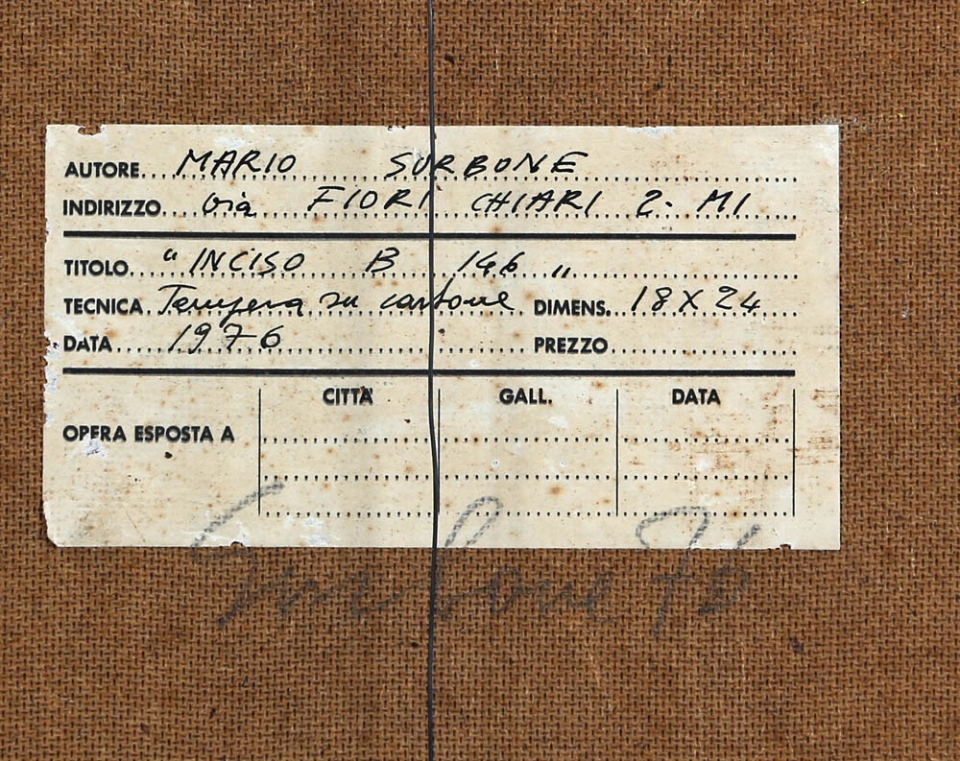 AUTORE... MARIO SURBONE
INDIRIZZO... via FIORI CHIARI 2. MI
TITOLO... "INCISO B 146"
TECNICA. Tempera su cartone DIMENS. 18 X 24
DATA... 1976 PREZZO...
CITTÀ GALL. DATA
OPERA ESPOSTA A
Surbone 76